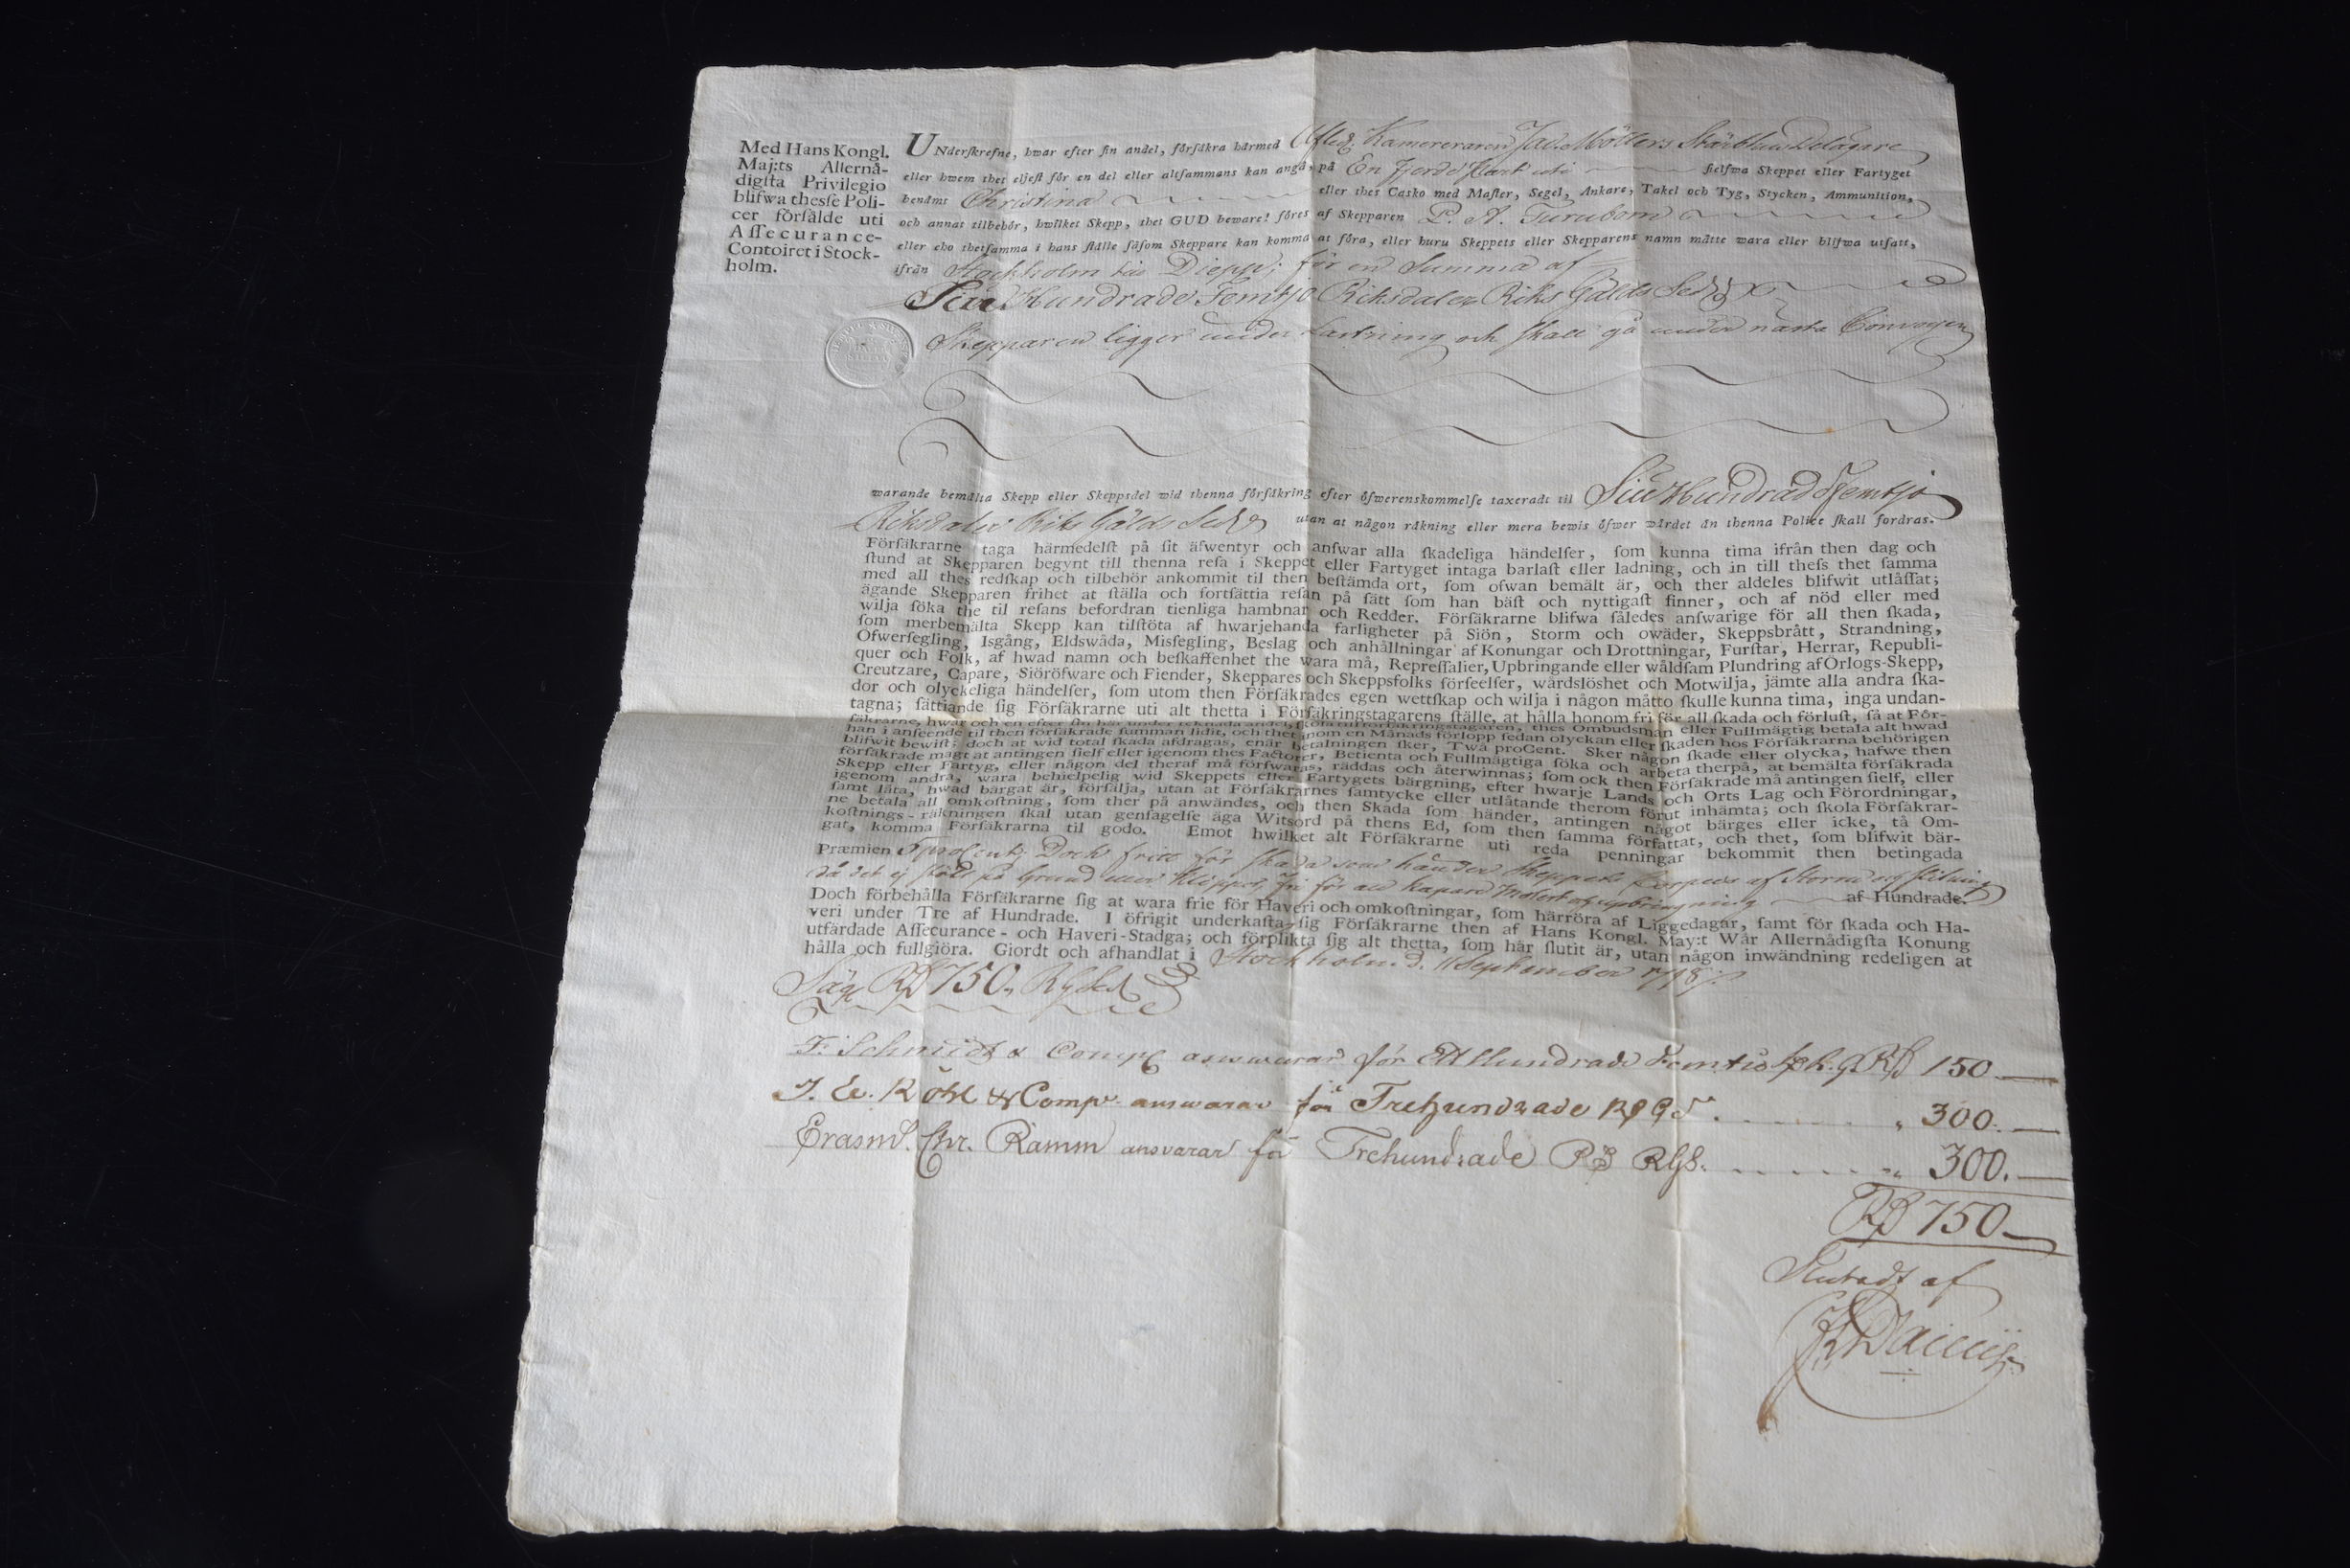 Med Hans Kongl.
Maj:ts Allernå-
digſta Privilegio
blifwa theſſe Poli-
cer förſålde uti
Aſſecurance-
Contoiret i Stock-
holm.
UNderſkrefne, hwar efter ſin andel, förſäkra härmed Afled. Kamereraren Jac. Möllers Stärbhus Delägare
eller hwem thet eljeſt för en del eller altſammans kan angå, på En Fjerde Part uti ſielfwa Skeppet eller Fartyget
benämt Christina eller thes Casko med Maſter, Segel, Ankare, Takel och Tyg, Stycken, Ammunition,
och annat tilbehör, hwilket Skepp, thet GUD beware! föres af Skepparen P. A. Furubom
eller eho thetſamma i hans ſtälle ſåſom Skeppare kan komma at föra, eller huru Skeppets eller Skepparens namn måtte wara eller blifwa utſatt,
ifrån Stockholm till Diepp; för en Summa af
Siu Hundrade Femtjo Riksdaler Riks Gälds Sedlr
Skepparen ligger under Lastning och skall gå under nästa Convoyen
warande bemälta Skepp eller Skeppsdel wid thenna förſäkring efter öfwerenskommelſe taxeradt til Siu Hundrad Femtjo
Riksdaler Riks Gälds Sedlr utan at någon räkning eller mera bewis öfwer wärdet än thenna Police ſkall fordras.
Förſäkrarne taga härmedelſt på ſit äfwentyr och anſwar alla ſkadeliga händelſer, ſom kunna tima ifrån then dag och
ſtund at Skepparen begynt till thenna reſa i Skeppet eller Fartyget intaga barlaſt eller ladning, och in till theſs thet ſamma
med all thes redſkap och tilbehör ankommit til then beſtämda ort, ſom ofwan bemält är, och ther aldeles blifwit utlåſſat;
ägande Skepparen frihet at ſtälla och fortſättia reſan på ſätt ſom han bäſt och nyttigaſt finner, och af nöd eller med
wilja ſöka the til reſans befordran tienliga hambnar och Redder. Förſäkrarne blifwa ſåledes anſwarige för all then ſkada,
ſom merbemälta Skepp kan tilſtöta af hwarjehanda farligheter på Siön, Storm och owäder, Skeppsbrått, Strandning,
Öfwerſegling, Isgång, Eldswåda, Misſegling, Beslag och anhållningar af Konungar och Drottningar, Furſtar, Herrar, Republi-
quer och Folk, af hwad namn och beſkaffenhet the wara må, Repreſſalier, Upbringande eller wåldſam Plundring af Örlogs-Skepp,
Creutzare, Capare, Siöröfware och Fiender, Skeppares och Skeppsfolks förſeelſer, wårdslöshet och Motwilja, jämte alla andra ſka-
dor och olyckeliga händelſer, ſom utom then Förſäkrades egen wettſkap och wilja i någon måtto ſkulle kunna tima, inga undan-
tagna; ſättiande ſig Förſäkrarne uti alt thetta i Förſäkringstagarens ſtälle, at hålla honom fri för all ſkada och förluſt, ſå at För-
ſäkrarne, hwar och en efter ſin här under teknada andel, ſkola til Förſäkringstagaren, thes Ombudsman eller Fullmägtig betala alt hwad
han i anſeende til then förſäkrade ſumman lidit, och thet inom en Månads förlopp ſedan olyckan eller ſkaden hos Förſäkrarna behörigen
blifwit bewiſt; doch at wid total ſkada afdragas, enär betalningen ſker, Twå proCent. Sker någon ſkade eller olycka, hafwe then
förſäkrade magt at antingen ſielf eller igenom thes Factorer, Betienta och Fullmägtiga ſöka och arbeta therpå, at bemälta förſäkrada
Skepp eller Fartyg, eller någon del theraf må förſwaras, räddas och återwinnas; ſom ock then Förſäkrade må antingen ſielf, eller
igenom andra, wara behielpelig wid Skeppets eller Fartygets bärgning, efter hwarje Lands och Orts Lag och Förordningar,
ſamt låta, hwad bärgat är, förſälja, utan at Förſäkrarnes ſamtycke eller utlåtande therom förut inhämta; och ſkola Förſäkrar-
ne betala all omkoſtning, ſom ther på anwändes, och then Skada ſom händer, antingen något bärges eller icke, tå Om-
koſtnings-räkningen ſkal utan genſägelſe äga Witsord på thens Ed, ſom then ſamma författat, och thet, ſom blifwit bär-
gat, komma Förſäkrarna til godo. Emot hwilket alt Förſäkrarne uti reda penningar bekommit then betingada
Præmien proCent; Dock fritt för skada som händer Skeppets Corpus af Storm och
då det ej stött på Grund eller Klippor, fri för all Kapare Molest och upbringning af Hundrade.
Doch förbehålla Förſäkrarne ſig at wara frie för Haveri och omkoſtningar, ſom härröra af Liggedagar, ſamt för ſkada och Ha-
veri under Tre af Hundrade. I öfrigit underkaſta ſig Förſäkrarne then af Hans Kongl. May:t Wår Allernådigſta Konung
utfärdade Aſſecurance- och Haveri-Stadga; och förplikta ſig alt thetta, ſom här ſlutit är, utan någon inwändning redeligen at
hålla och fullgiöra. Giordt och afhandlat i Stockholm d. 11 September 1798
Säge Rd 750
F. Schmidt & Comp answarar för Ett Hundrade Femtio 150
& Comp answarar för Trehundrade 300
Erasm. Chr. Ramm ansvarar för Trehundrade Rd RGS. 300.
Rd 750
Slutadt af